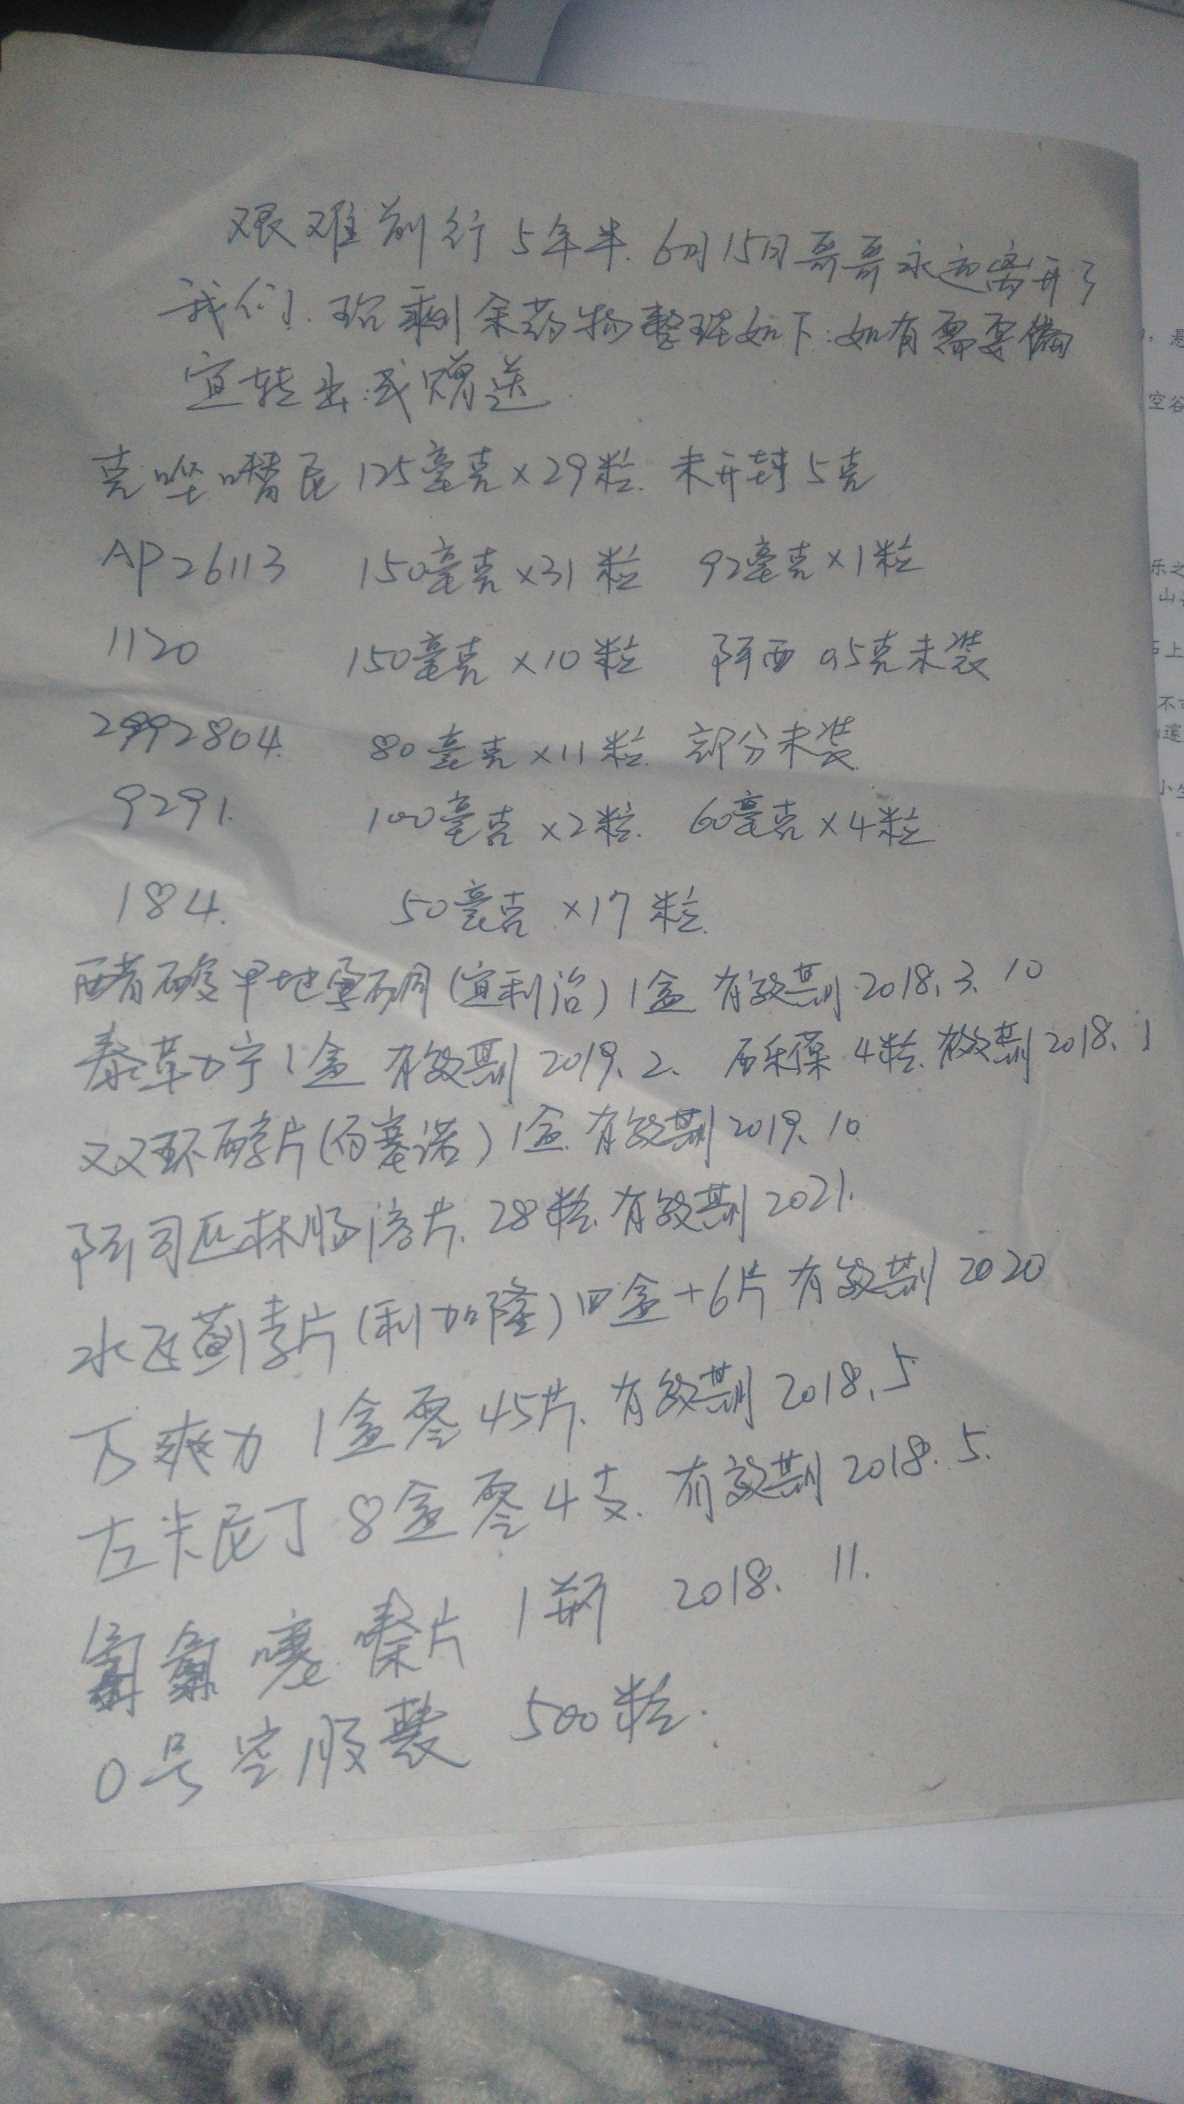 艰难前行5年半.6月15日哥哥永远离开了
我们.现剩余药物整理如下:如有需要偏
宜转出或赠送.
克唑嘈尼 125毫克×29粒. 未开封5克
AP26113 150毫克×31粒 92毫克×1粒
1120 150毫克×10粒 阿西 0.5克未装
2992804. 80毫克×11粒. 部分未装.
9291. 100毫克×2粒. 60毫克×4粒
184. 50毫克×17粒.
醋酸甲地孕酮(宜利治)1盒 有效期2018.3.10
泰莘力宁1盒 有效期2019.2. 西乐葆4粒.有效期2018.1
双环醇片(百赛诺)1盒.有效期2019.10.
阿司匹林肠溶片.28粒.有效期2021.
水飞蓟素片(利加隆)四盒+6片 有效期2020
万爽力 1盒零45片.有效期2018.5
左卡尼丁8盒零4支.有效期2018.5.
噻嗪片 1瓶 2018.11.
0号空胶囊 500粒.
空谷
乐之
上
不
小